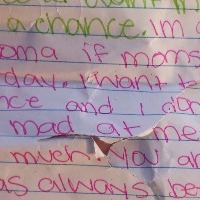 a chance. Im
oma if moms
day. I want
nce and I
mad at me
much. You ar
as always be